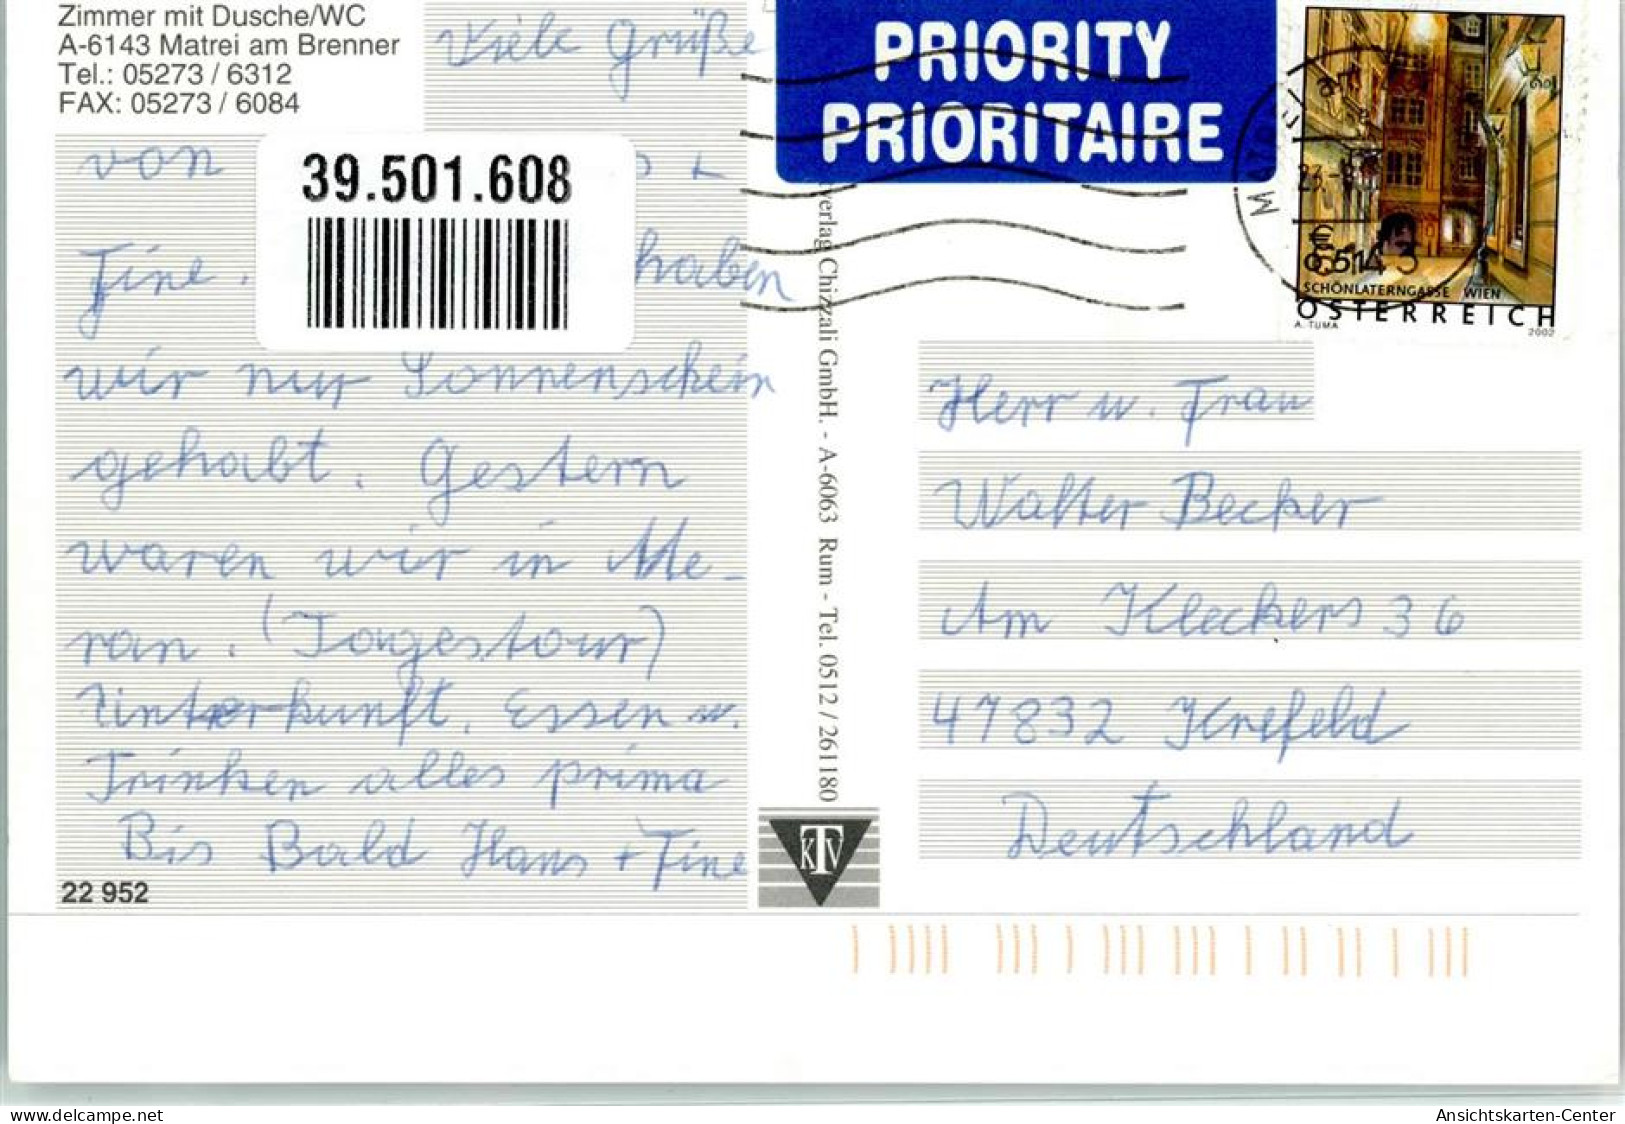 Zimmer mit Dusche/WC
A-6143 Matrei am Brenner
Tel.: 05273 / 6312
FAX: 05273 / 6084
Viele Grüße
von
39.501.608
s +
Fine. haben
wir nur Sonnenschein
gehabt. Gestern
waren wir in Me-
ran. (Tagestour)
Unterkunft, Essen u.
Trinken alles prima
Bis Bald Hans + Fine
22 952
verlag Chizzali GmbH. - A-6063 Rum - Tel. 0512 / 261180
KTV
PRIORITY
PRIORITAIRE
€
0.51
SCHÖNLATERNGASSE WIEN
ÖSTERREICH
A. TUMA 2002
Herr u. Frau
Walter Becker
Am Kleckers 36
47832 Krefeld
Deutschland
https://www.delcampe.net
Ansichtskarten-Center